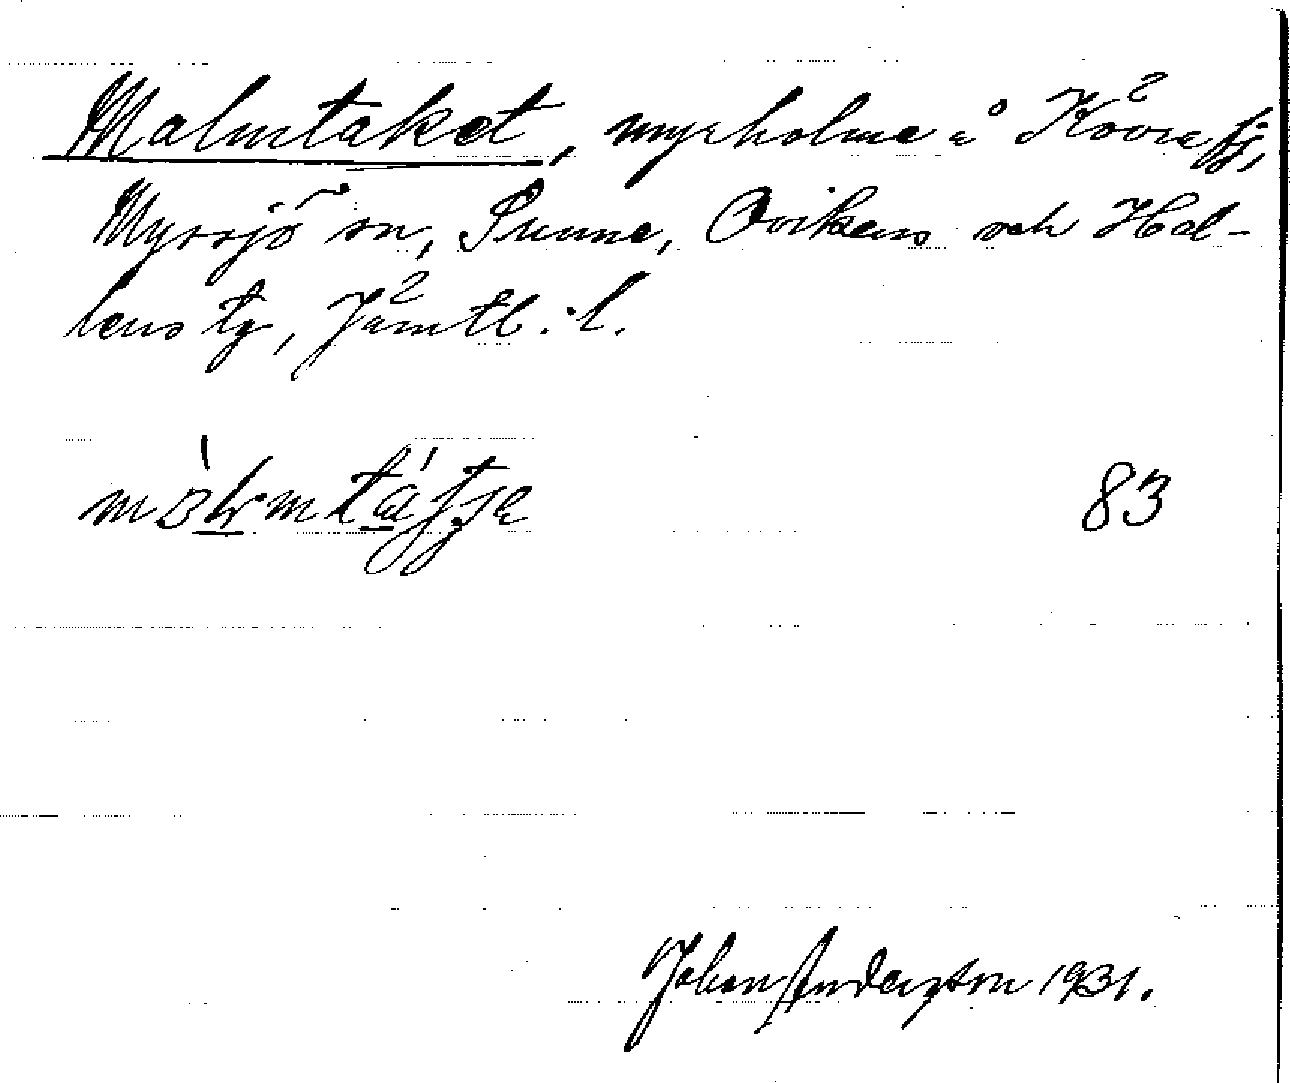 Malmtaket, myrholme å Kövra fj,
Myssjö sn, Sunne, Ovikens och Hal-
lens tg, Jämtl. l.
83
Johan Anderzton 1931.